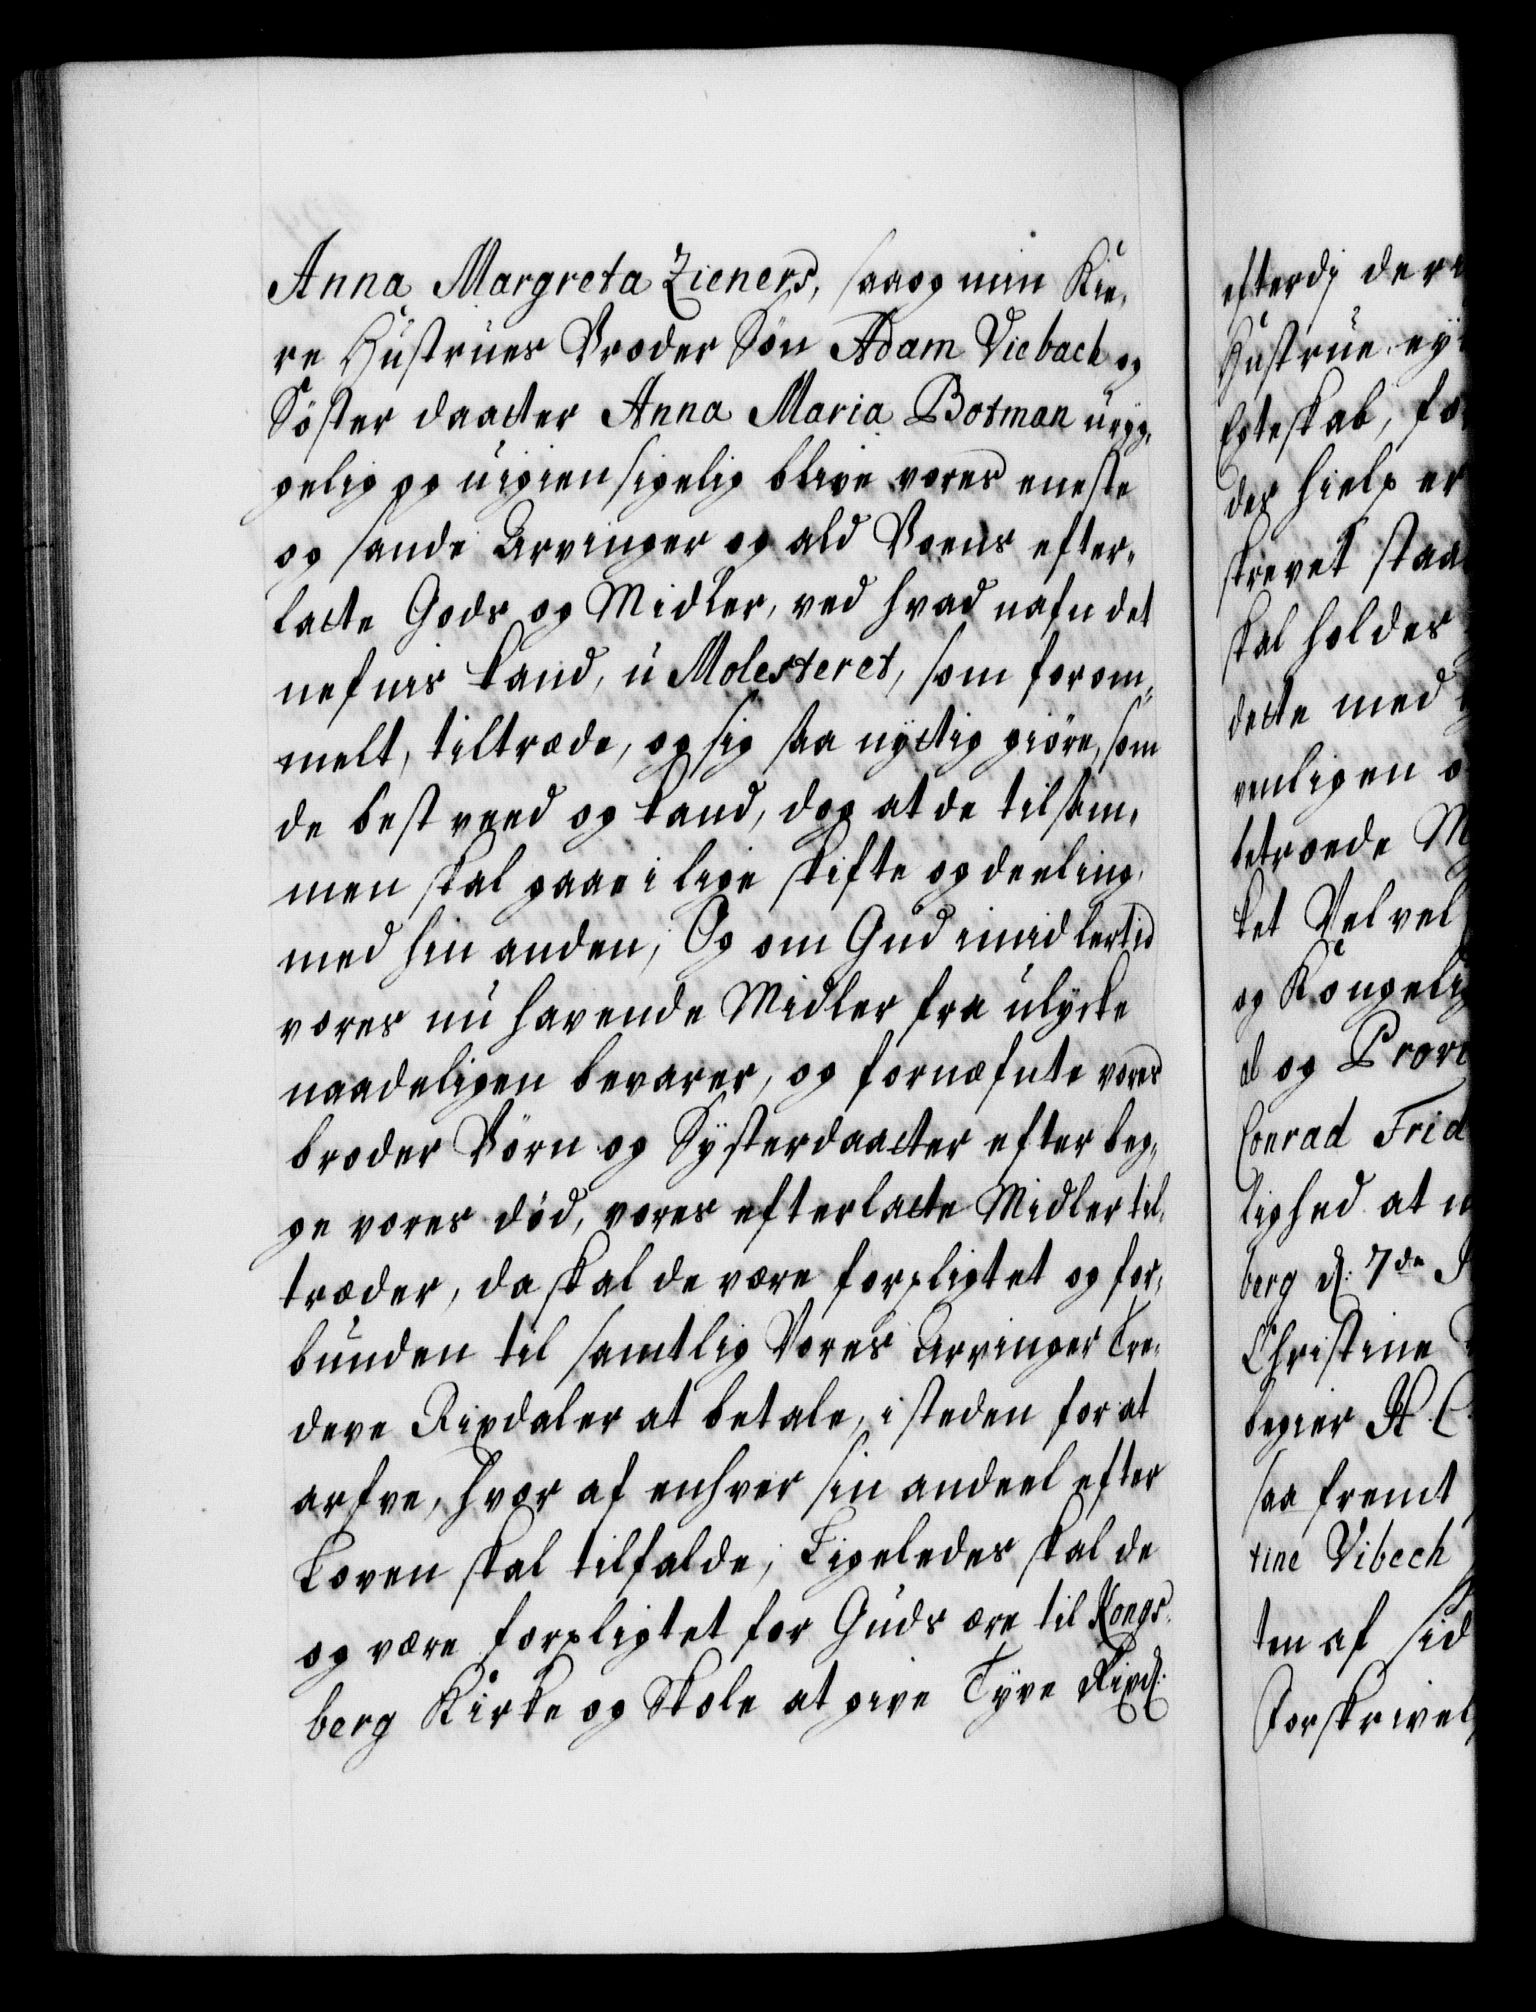 Anna Margreta Zieners, saa og min Kie,
re Hustrues Broder Søn Adam Viebach og
Søster daatter Anna Maria Botman uryg,
gelig og uigiensigelig blive vores eneste
og sande Arvinger og ald Voens efter,
latte Gods og Midler, ved hvad nafn det
nefnis kand, u Molesteret, som forom,
melt, tiltræde, og sig saa nyttig giøre, som
de best veed og kand, dog at de tilsam,
men skal gaae i lige skifte og deeling,
med hin anden; Og om Gud imidlertid
vores nu havende Midler fra ulycke
naadeligen bevarer, og fornæfnte vores
broder Børn og Systerdaatter efter beg,
ge vores død, vores efterlatte Midler til,
træder, da skal de være forpligtet og for,
bunden til samtlig Vores Arvinger Tre,
deve Rixdaler at betale, i steden for at
arfve, hvor af enhver sin andeel efter
Loven skal tilfalde; Ligeledes skal de
og være forpligtet for Guds ære til Kongs,
berg Kirke og Skole at give Tyve Rixd:
efterdi der
Hustrue ey
Egteskab, fo
des hielp er
skrevet staa
skal holdes
dette med
venligen o
betroede M
ket Velvel
og Kongelig
al og Prov
Conrad Frid
lighed at u
berg d: 7de S
Christine
begier A C
saa fremt
tine Vibech
ten af sid
Forskrivel